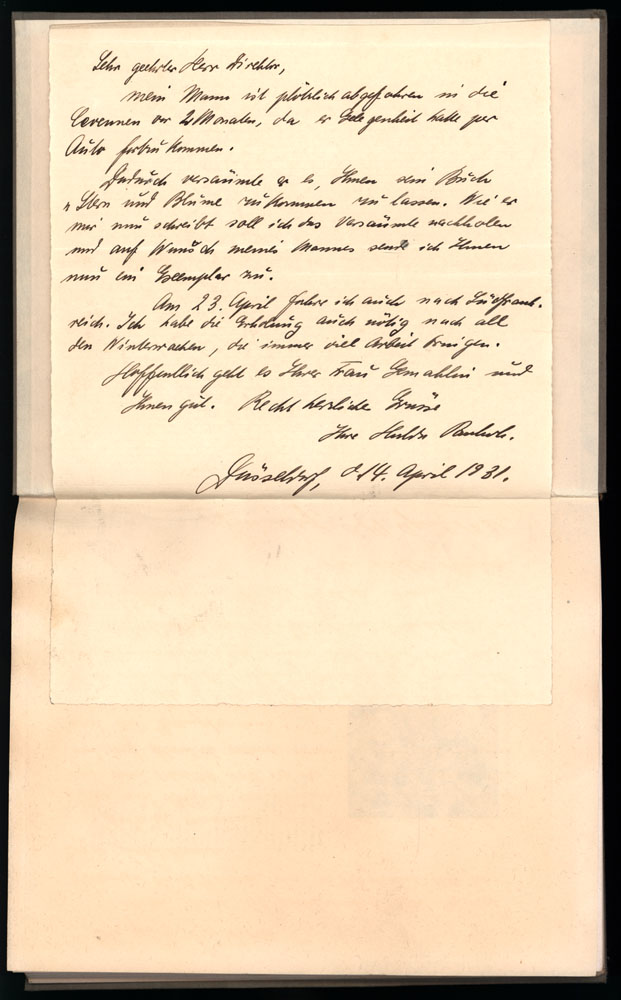 Sehr geehrter Herr Direktor,
mein Mann ist plötzlich abgefahren in die
Cevennen vor 2 Monaten, da er Gelegenheit hatte per
Auto fortzukommen.
Dadurch versäumte er es, Ihnen sein Buch
„Stern und Blume zukommen zu lassen. Wie er
mir nun schreibt soll ich das Versäumte nachholen
und auf Wunsch meines Mannes sende ich Ihnen
nun ein Exemplar zu.
Am 23. April fahre ich auch nach Südfrank-
reich. Ich habe die Erholung auch nötig nach all
den Winterwochen, die immer viel Arbeit bringen.
Hoffentlich geht es Ihrer Frau Gemahlin und
Ihnen gut. Recht herzliche Grüsse
Ihre Hulda
Düsseldorf, d. 14. April 1931.